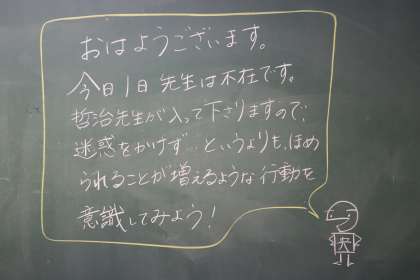 おはようございます。
今日1日先生は不在です。
哲治先生が入って下さりますので、
迷惑をかけず…というよりも、ほめ
られることが増えるような行動を
意識してみよう!